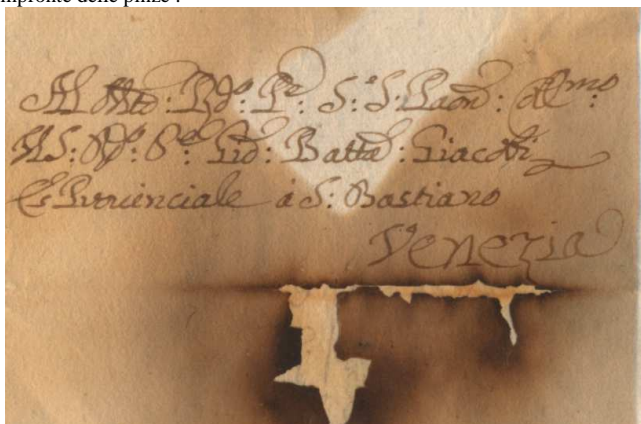 mpronte delle pinze .
Al Molto: Rdo: Pe S: S: Paon: Colmo:
Il S: Rdo: Pe Gio: Batta: Giacobi
Ex Provinciale à S: Bastiano
Venezia